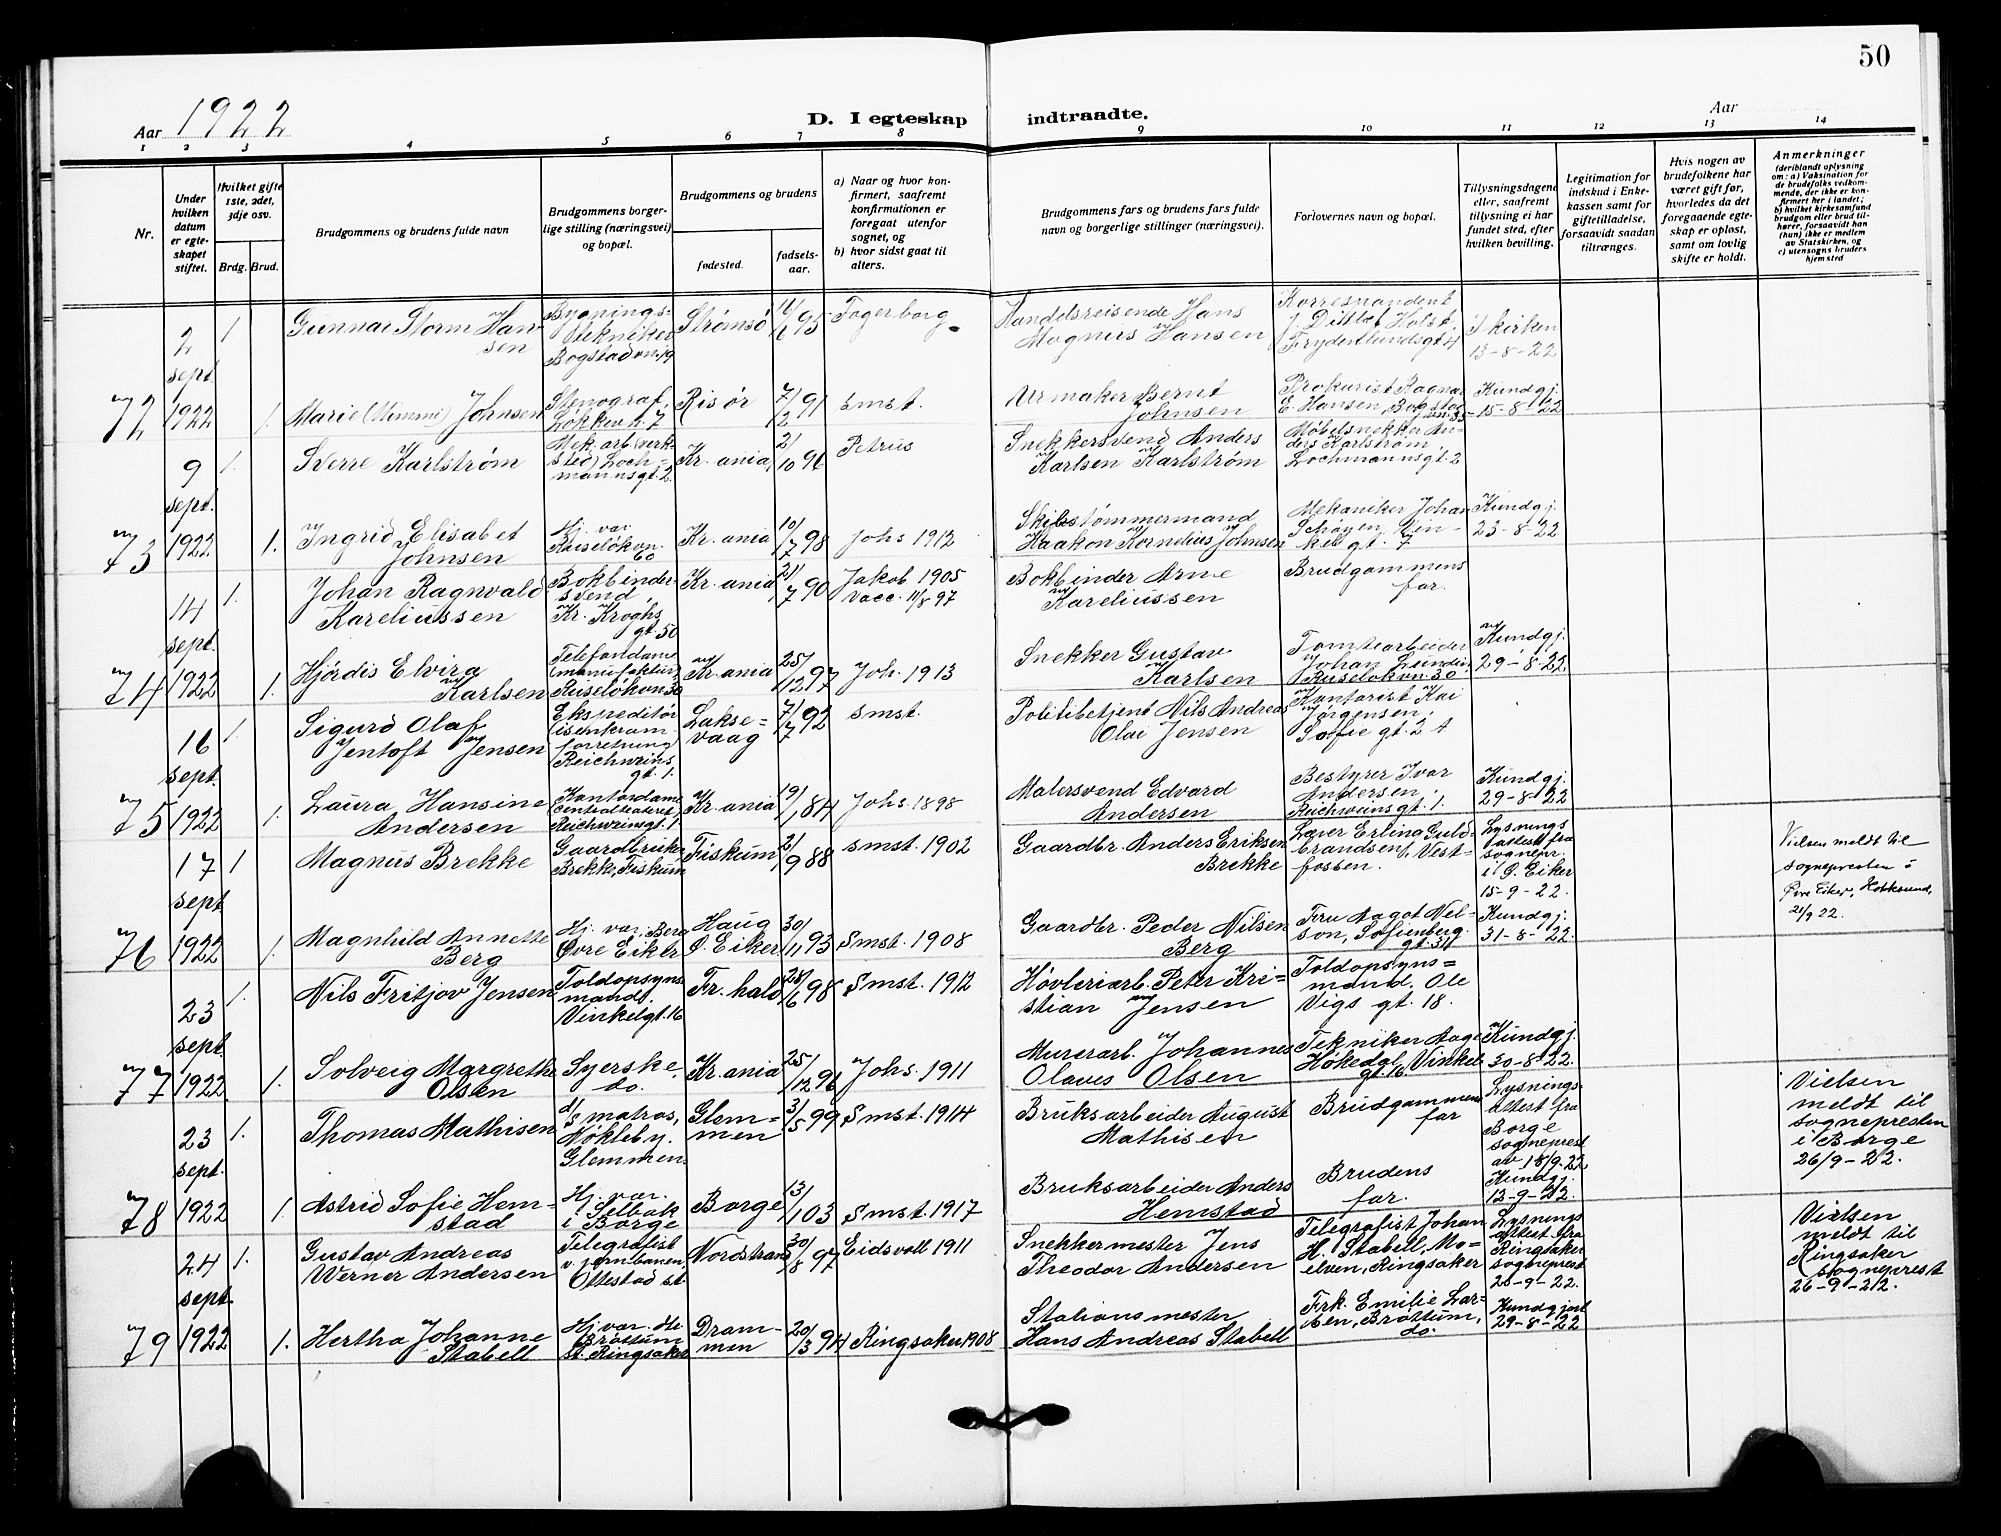 50
Aar 1922
D. I egteskap indtraadte.
Aar
1 2 3 4 5 6 7 8 9 10 11 12 13 14
Nr.
Under
hvilken
datum
er egte-
skapet
stiftet.
Hvilket gifte
1ste, 2det,
3dje osv.
Brdg. Brud.
Brudgommens og brudens fulde navn
Brudgommens borger-
lige stilling (næringsvei)
og bopæl.
Brudgommens og brudens
fødested.
fødsels-
aar.
a) Naar og hvor kon-
firmert, saafremt
konfirmationen er
foregaat utenfor
sognet, og
b) hvor sidst gaat til
alters.
Brudgommens fars og brudens fars fulde
navn og borgerlige stillinger (næringsvei).
Forlovernes navn og bopæl.
Tillysningsdagene
eller, saafremt
tillysning ei har
fundet sted, efter
hvilken bevilling.
Legitimation for
indskud i Enke-
kassen samt for
giftetilladelse,
forsaavidt saadan
tiltrænges.
Hvis nogen av
brudefolkene har
været gift før,
hvorledes da det
foregaaende egte-
skap er opløst,
samt om lovlig
skifte er holdt.
Anmerkninger
(deriblandt oplysning
om: a) Vaksination for
de brudefolks vedkom-
mende, der ikke er kon-
firmert her i landet;
b) hvilket kirkesamfund
brudgom eller brud til-
hører, forsaavidt han
(hun) ikke er medlem
av Statskirken, og
c) utensogns bruders
hjemsted
72
2
sept.
1922
1
Gunnar Storm Han-
sen
Bygnings-
tekniker
Bogstadvn. 19
Strømsö
95
Fagerborg
Handelsreisende Hans
Magnus Hansen
Korrespondent
J. Ditlef Holst,
Frydenlundsgt. 4
I kirken
13-8-22
1.
Marie (Mimmi) Johnsen
Stenograf,
Løkkev. 7
Risör
7/2 91
smst.
Urmaker Bernt
Johnsen
Prokurist Ragnar
E. Hansen, Bogstad-
vn. 35
Kundgj.
15-8-22
73
9
sept.
1922
1.
Sverre Karlstrøm
Mek. arb. (verk-
sted) Loch-
mannsgt. 2
Kr.ania
21/10 96
Petrus
Snekkersvend Anders
Karlsen Karlstrøm
Møbelsnekker An-
ders Karlstrøm,
Lochmannsgt. 2
1.
Ingrid Elisabet
Johnsen
Hj. var.
Ruseløkvn.
60
Kr.ania
10/7 98
Johs 1912
Skibstømmermand
Haakon Kornelius Johnsen
Mekaniker Johan
Schøyen, Vin-
kel gt. 7
Kundgj.
23-8-22
74
14
sept.
1922
1.
Johan Ragnvald
Kareliussen
Bokbinder-
svend,
Kr. Kroghs
gt. 50
Kr.ania
21/7 90
Jakob 1905
Vacc. 11/8 97
Bokbinder Arne
Kareliussen
Brudgommens
far.
1.
Hjørdis Elvira
Karlsen
Telefondame
(manufaktur)
Ruseløkvn. 30
Kr.ania
25/12 97
Joh. 1913
Snekker Gustav
Karlsen
Tomtearbeider
Johan Lundin,
Ruseløkvn. 30
Kundgj.
29-8-22
75
16
sept.
1922
1.
Sigurd Olaf
Jentoft Jensen
Ekspeditör
(isenkram-
forretning)
Reichweins
gt. 1.
Lakse-
vaag
7/7 92
smst.
Politibetjent Nils Andreas
Olai Jensen
Kontorist Kai
Jørgensen,
Sofie gt. 24
1.
Laura Hansine
Andersen
Kontordame
(Centralteatret)
Reichweinsgt. 1
Kr.ania
19/1 84
Johs. 1898
Malersvend Edvard
Andersen
Bestyrer Ivar
Andersen,
Reichweinsgt. 1.
Kundgj.
29-8-22
76
17
sept.
1922
1
Magnus Brekke
Gaardbruker
Brekke, Fiskum
Fiskum
21/9 88
smst. 1902
Gaardbr. Anders Eriksen
Brekke
Lærer Erling Guld-
brandsen, Vest-
fossen.
Lysnings
attest fra
sognepr.
i Ö. Eiker
15-9-22.
Vielsen meldt til
sognepresten i
Øvre Eiker, Hokksund,
21/9 22.
1.
Magnhild Annette
Berg
Hj. var. Berg
Øvre Eiker
Haug
Ö. Eiker
30/11 93
Smst. 1908
Gaardbr. Peder Nilsen
Berg
Fru Aagot Nel-
son, Sofienberg-
gt. 31
Kundgj.
31-8-22.
77
23
sept.
1922
1.
Nils Fritjov Jensen
Toldopsyns-
mand.
Vinkelgt. 16
Fr. hald
28/6 98
Smst. 1912
Høvleriarb. Peter Kri-
stian Jensen
Toldopsyns-
mand, Ole
Vigs gt. 18.
1.
Solveig Margrethe
Olsen
Syerske,
do.
Kr.ania
25/12 96
Johs. 1911
Murerarb. Johannes
Olaves Olsen
Tekniker Aage
Høkedal, Vinkel-
gt. 16
Kundgj.
30-8-22.
78
23
sept.
1922
1.
Thomas Mathisen
d/s matros,
Nøkleby.
Glemmen.
Glem-
men
3/5 99
Smst. 1914
Bruksarbeider August
Mathisen
Brudgommens
far
Lysnings-
attest fra
Borge
sogneprest
av 18/9.22
Vielsen
meldt til
sognepresten
i Borge
26/9-22.
1.
Astrid Sofie Hem-
stad
Hj. var.
Selbak
i Borge
Borge
13/1 03
Smst. 1917
Bruksarbeider Anders
Hemstad
Brudens
far.
Kundgj.
12-9-22.
79
24
sept.
1922
1.
Gustav Andreas
Werner Andersen
Telegrafist
v. jernbanen
Ottestad st
Nordstrand
30/8 97
Eidsvoll 1911
Snekkermester Jens
Theodor Andersen
Telegrafist Johan
H. Stabell, Mo-
elven, Ringsaker
Lysnings
attest fra
Ringsaker
sogneprest
20-9-22.
Vielsen
meldt til
Ringsaker
sogneprest
26-9-22.
1.
Hertha Johanne
Stabell
Hj. var.
Brøttum
st. Ringsaker
Dram-
men
20/3 94
Ringsaker 1908
Stationsmester
Hans Andreas Stabell
Frk. Emilie Lar-
sen, Brøttum,
do.
Kundgjort
29-8-22